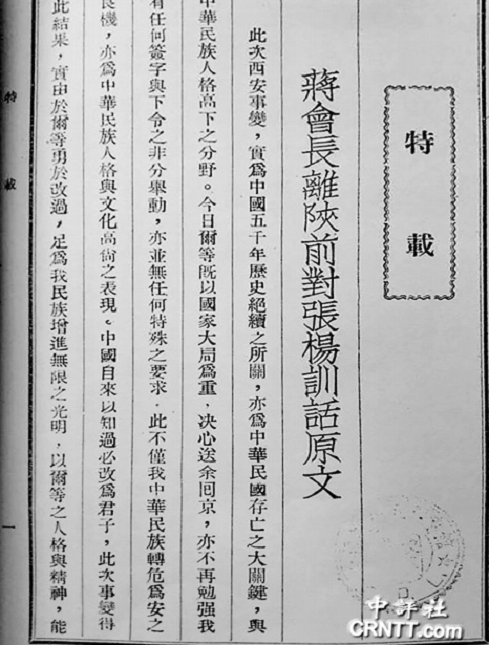 特載
蔣會長離陝前對張楊訓話原文
此次西安事變，實爲中國五千年歷史絕續之所關，亦爲中華民國存亡之大關鍵，與
中華民族人格高下之分野。今日爾等旣以國家大局爲重，决心送余回京，亦不再勉强我
有任何簽字與下令之非分舉動，亦並無任何特殊之要求．此不僅我中華民族轉危爲安之
良機，亦爲中華民族人格與文化高尙之表現。中國自來以知過必改爲君子，此次事變得
此結果，實由於爾等勇於改過，足爲我民族增進無限之光明．以爾等之人格與精神，能
特載
一
中評社
CRNTT.com